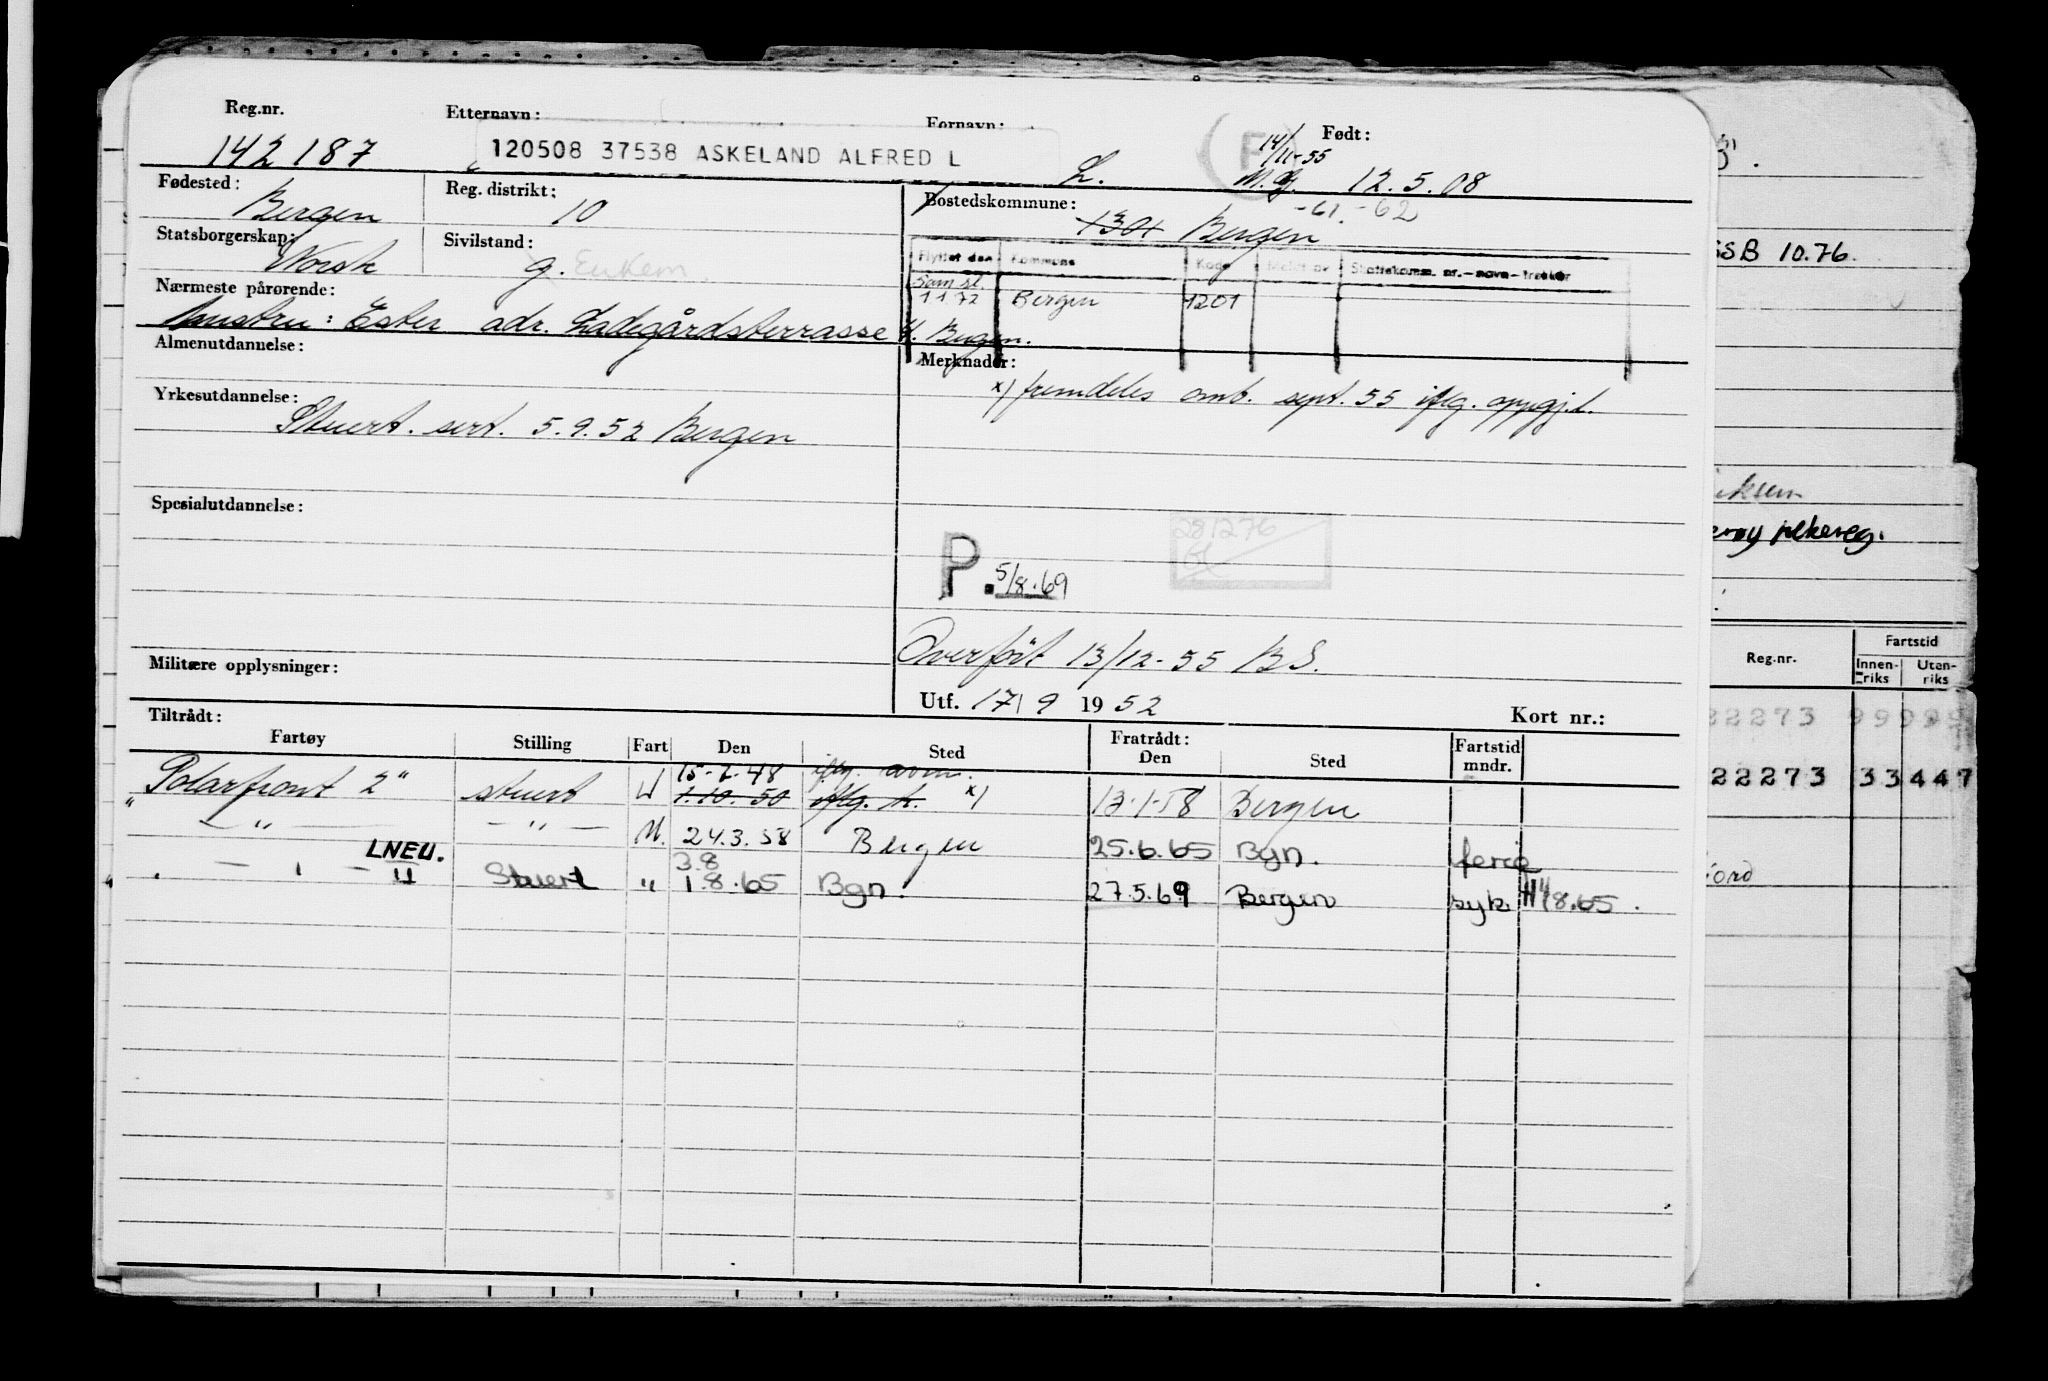 Reg.nr. Etternavn: Fornavn: Født:
142187 120508 37538 ASKELAND ALFRED L L. F 14/11-55 M.G. 12.5.08
Fødested: Bergen Reg. distrikt: 10 Bostedskommune: 1301 Bergen -61.-62
Statsborgerskap: Norsk Sivilstand: g. Enkem.
Flyttet den Kommune Kode Meldt av Skattekomm. nr.-navn-trekkår
Sam.sl. 1 1 72 Bergen 1201
Nærmeste pårørende:
hustru: Ester adr. Ladegårdsterrasse Bergen.
Almenutdannelse: Merknader:
x) fremdeles omb. sept. 55 iflg. oppgj.l.
Yrkesutdannelse:
Stuert. sert. 5.9.52 Bergen
Spesialutdannelse:
281276
P. 5/8.69
Overført 13/12-55 B.S.
Militære opplysninger:
Utf. 17/9 1952 Kort nr.:
Tiltrådt: Fratrådt:
Fartøy Stilling Fart Den Sted Den Sted Fartstid mndr.
15-7-48 iflg.
"Polarfront 2" stuert U 1.10.50 iflg. x) 13-1-58 Bergen
— " — — " — U. 24.3.58 Bergen 25.6.65 Bgn. ferie
LNEU. 3.8
— " — Stuert " 1.8.65 Bgn. 27.5.69 Bergen syk 8.65.
SSB 10.76.
Reg.nr. Fartstid
Innen-riks Uten-riks
22273
22273 33447